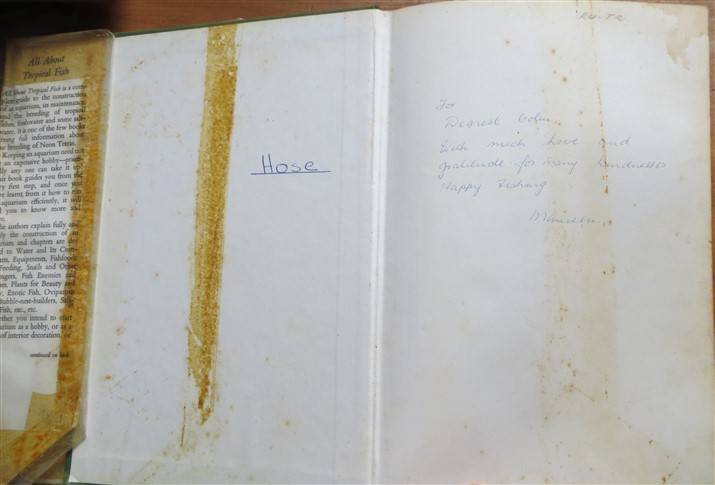 All About
Tropical Fish
All About Tropical Fish is a com-
guide to the construction
an aquarium, its maintenance
and the breeding of tropical
freshwater and some salt-
water. It is one of the few books
full information about
breeding of Neon Tetras.
Keeping an aquarium need not
an expensive hobby—
any one can take it up
book guides you from the
first step, and once you
learnt from it how to run
aquarium efficiently, it will
you to know more and
authors explain fully
the construction of
and chapters are
to Water and Its
Equipments, Fishfoods
Feeding, Snails and Other
Fish Enemies and
Plants for Beauty and
Exotic Fish, Oviparous
Bubble-nest-builders,
Fish, etc., etc.
you intend to start
as a hobby, or as a
of interior decoration, or
continued on back
Hose
To
Dearest
With much love and
gratitude for many kindnesses
Happy Fishing